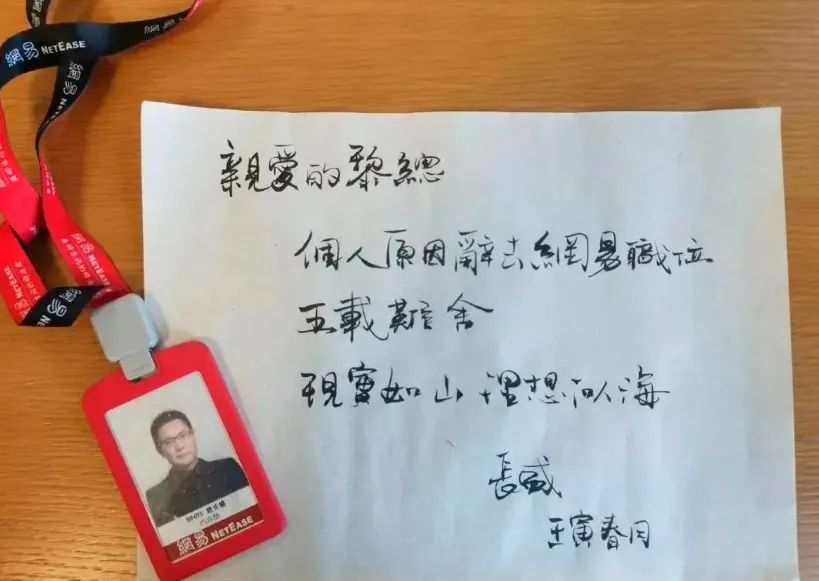 網易 NETEASE
網易 NETEASE
網易 NETEASE
親愛的黎總
個人原因辭去網易職位
五載難舍
現實如山 理想似海
長盛
壬寅春月
網易 NETEASE